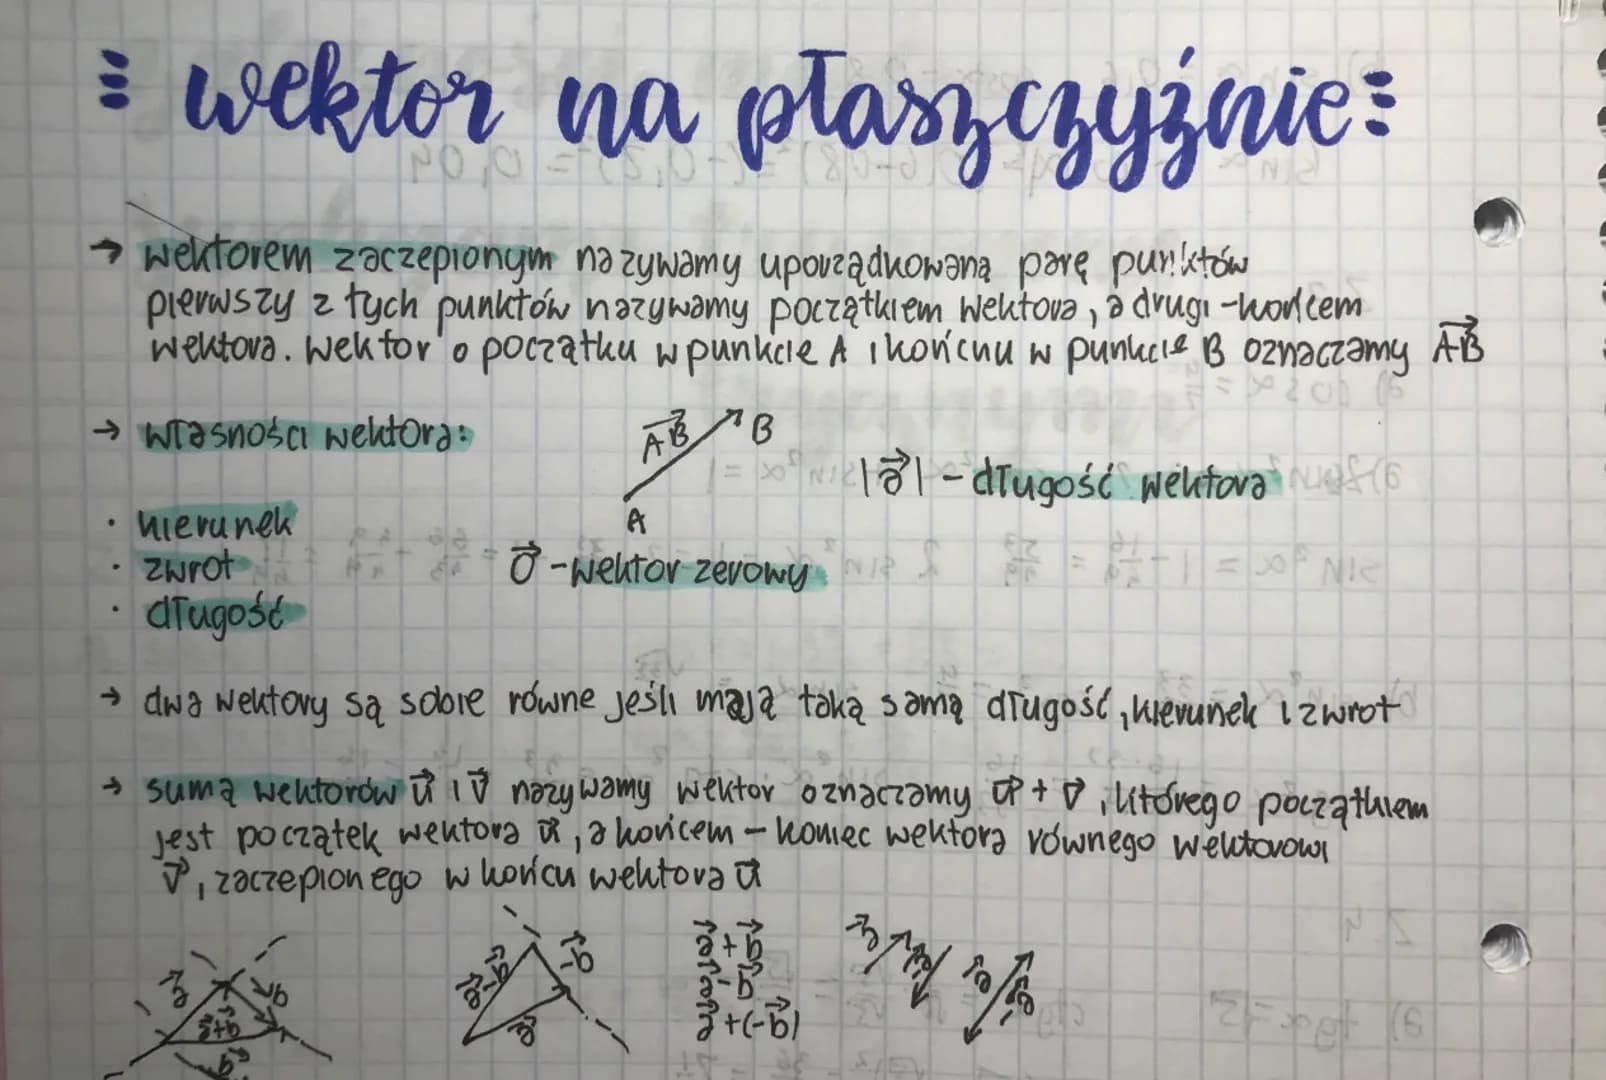 wektor na płaszczyźnie
→ wektorem zaczepionym nazywamy uporządkowaną parę punktów
pierwszy z tych punktów nazywamy początkiem wektora, a drugi - końcem
wektora. Wektor o początku w punkcie A i końcu w punkcie B oznaczamy AB⃗
→ własności wektora:
AB⃗ B
A
|a⃗| - długość wektora
· kierunek
· zwrot
· długość
0⃗ - wektor zerowy
→ dwa wektory są sobie równe jeśli mają taką samą długość, kierunek i zwrot
→ sumą wektorów u⃗ i v⃗ nazywamy wektor oznaczamy u⃗ + v⃗, którego początkiem
jest początek wektora u⃗, a końcem - koniec wektora równego wektorowi
v⃗, zaczepionego w końcu wektora u⃗
a⃗ b⃗ a⃗+b⃗ b⃗
a⃗-b⃗ -b⃗ a⃗
a⃗+b⃗
a⃗-b⃗
a⃗+(-b⃗)
a⃗ -a⃗ a⃗ -a⃗